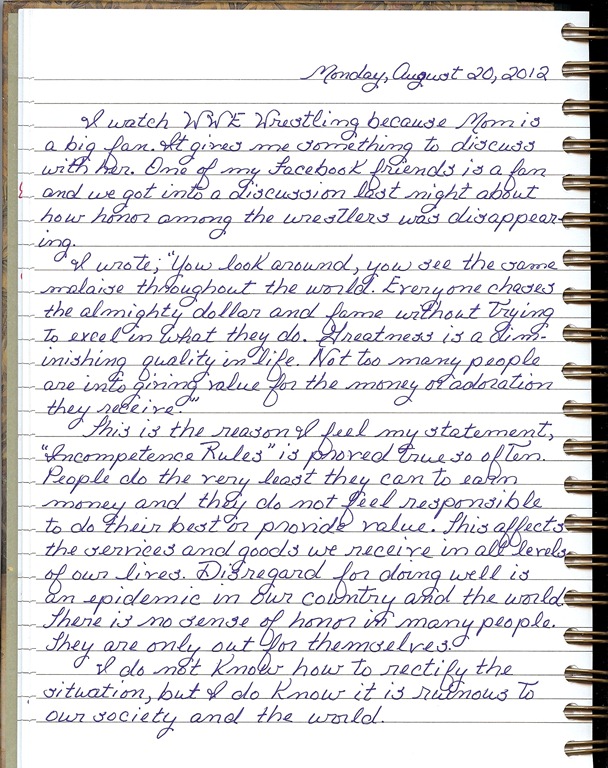 Monday, August 20, 2012
I watch WWE Wrestling because Mom is
a big fan. It gives me something to discuss
with her. One of my Facebook friends is a fan
and we got into a discussion last night about
how honor among the wrestlers was disappear-
ing.
I wrote; "You look around, you see the same
malaise throughout the world. Everyone chases
the almighty dollar and fame without trying
to excel in what they do. Greatness is a dim-
inishing quality in life. Not too many people
are into giving value for the money or adoration
they receive."
This is the reason I feel my statement,
"Incompetence Rules" is proved true so often.
People do the very least they can to earn
money and they do not feel responsible
to do their best or provide value. This affects
the services and goods we receive in all levels
of our lives. Disregard for doing well is
an epidemic in our country and the world.
There is no sense of honor in many people.
They are only out for themselves.
I do not know how to rectify the
situation, but I do know it is ruinous to
our society and the world.